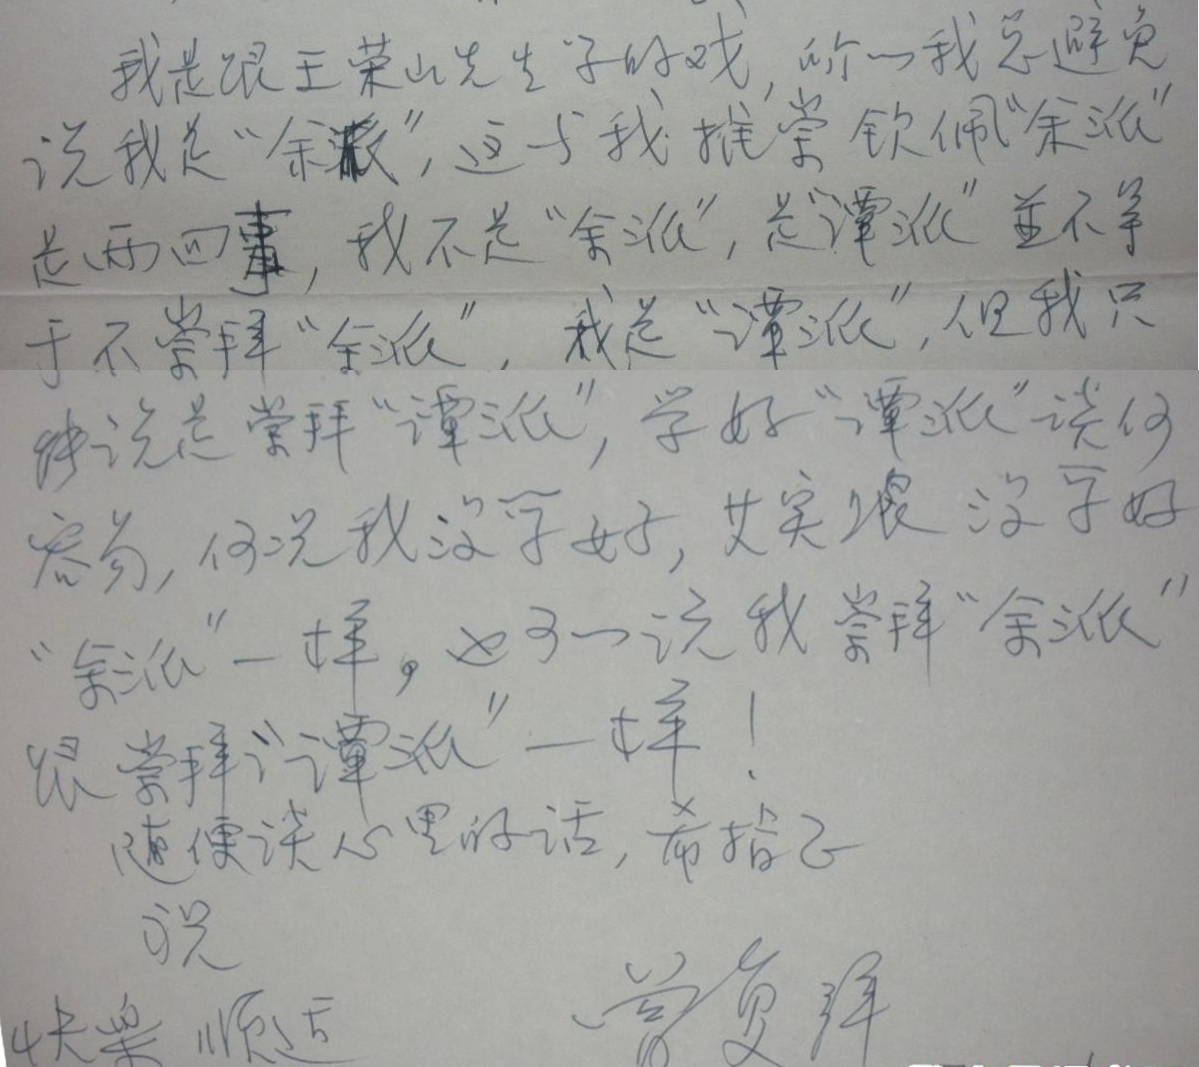 我是跟王荣山先生学的戏，所以我总避免
说我是“余派”，这与我推崇钦佩“余派”
是两回事，我不是“余派”，是“谭派”並不等
于不崇拜“余派”，我是“谭派”，但我只
能说是崇拜“谭派”，学好“谭派”谈何
容易，何况我没学好，其实跟没学好
“余派”一样。也可以说我崇拜“余派”
跟崇拜“谭派”一样！
随便谈心里的话，希指正
祝
快乐 顺适
曾复拜